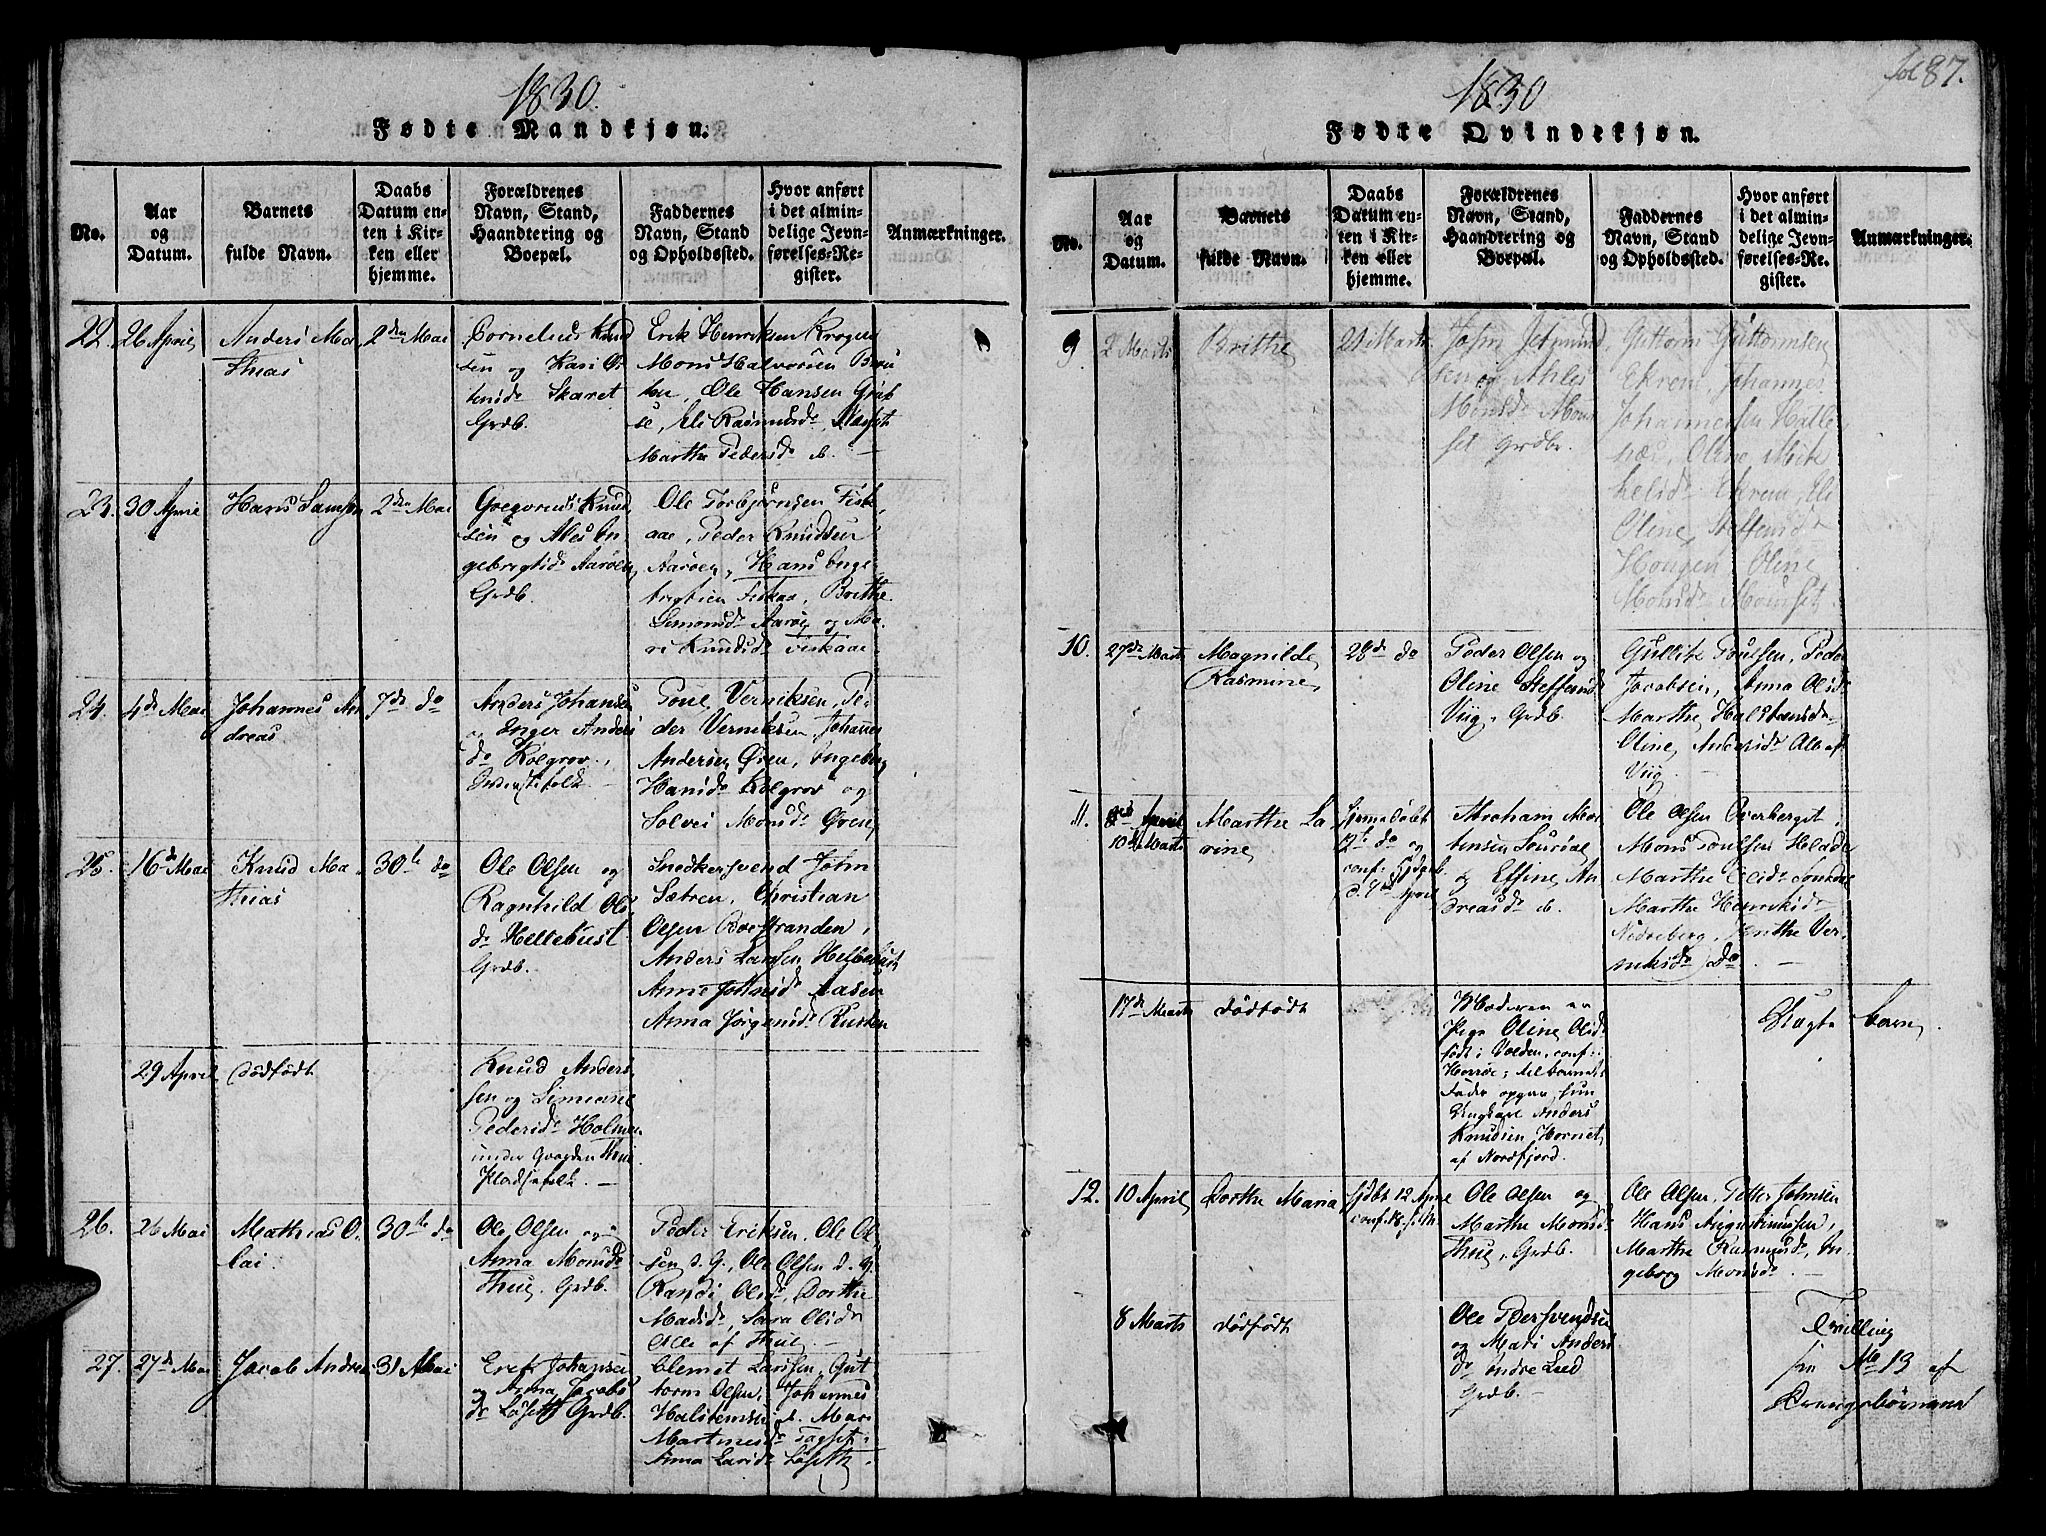 1830.
Fødte Mandkjøn.
No.
Aar
og
Datum.
Barnets
fulde Navn.
Daabs
Datum en-
ten i Kir-
ken eller
hjemme.
Forældrenes
Navn, Stand,
Haandtering og
Boepæl.
Faddernes
Navn, Stand
og Opholdssted.
Hvor anført
i det almin-
delige Jevn-
førelses-Re-
gister.
Anmærkninger.
22. 26 April
Anders Ma
thias
2den Mai
Cornelius Knud
sen og Kari
Skaret
Grdb.
Erik Henriksen
Mons Halvorsen
Ole Hansen
Rasmusdr
Marthe Pedersd.
23. 30 April
Hans Samson
2den Mai
Gregorius Knud
sen og
gebregtsd. Aarøen
Grdb.
Ole Torbjørnsen Fisk
aae, Peder Knudsen
Aarøen, Hans Inge
brigtsen Fiskaa, Brithe
Simonsd. Aarøe og Ma
ri Knudsd. Fiskaae
24. 4de Mai
Johannes An
dreas
7de do
Anders Johansen
og Inger Anders
dr Kolgrov,
Inderstefolk
Poul Verniksen, Pe-
der Verniksen, Johannes
Andersen Øren, Ingeborg
Hansdr Kolgrov og
Solvei Monsdr Øren
25. 16de Mai
Knud Ma
thias
30te do
Ole Olsen og
Ragnhild Ols
dr Hellebust
Grdb.
Snedkersvend John
Sætren, Christian
Olsen Boestranden,
Anders Larsen Hellebust
Anne Johnsd. Aasen
Anna Jørgensd.
29 April
Dødfødt
Knud Anders
sen og Simeane
Pedersd. Holmen
under Gaarden Thue
Pladsefolk. —
26. 26 Mai
Mathias O
lai
30te do
Ole Olsen og
Anna Monsdr
Thue. Grdb.
Peder Eriksen, Ole Ol
sen d. y., Ole Olsen d. y.
Randi Olsd., Dorthe
Madsd., Sara Olsdr
Alle af Thue —
27. 27de Mai
Jacob Andrea
31 Mai
Erik Johansen
og Anna Jacobs
dr Løseth Grdb.
Clemet Larssen, Gut
torm Olsen, Johannes
Halstensen, Mari
Martinusdr
Anna Larsdr Løseth.
fol 87.
1830
Fødte Qvindekjøn.
No.
Aar
og
Datum.
Barnets
fulde Navn.
Daabs
Datum en-
ten i Kir-
ken eller
hjemme.
Forældrenes
Navn, Stand,
Haandtering og
Boepæl.
Faddernes
Navn, Stand
og Opholdssted.
Hvor anført
i det almin-
delige Jevn-
førelses-Re-
gister.
Anmærkninger.
9 2 Marts
Brithe
21 Marts
John Jetmund
sen og Ahles
Monsdr Mom
set Grdbr.
Guttorm Guttormsen
Ekrem, Johannes
Johannessen
Oline Mik
kelsdr Ekrem, Eli
Oline Steffensdr
Hougen Oline
Monsdr Momset
10. 27de Marts
Magnilde
Rasmine
28de do
Peder Olsen og
Oline Steffensd
Viig, Grdb.
Gullik Poulsen, Peder
Jacobsen, Anna Olsd.
Marthe Halstensdr
Oline Andersdr Alle af
Viig —
11. April
10de Marts
Marthe La
rine
hjemmedøbt
12t do og
conf.
d. April
Abraham Mor
tensen Sourdal
og Effine An
dreasdr
Ole Olsen Overberget,
Mons Poulsen
Marthe
Marthe Henriksdr
Nedreberg, Brithe Ver-
niksdr do —
17de Marts
Dødfødt
Moderen er
Pige Oline Olsd.
født i Volden, conf.
Fader opgav hun
Ungkarl Anders
Knudsen Hornet
af Nordfjord.
Uægte barn.
12. 10 April
Dorthe Maria
hjdbt 12 April
conf. 18
Ole Olsen og
Marthe Monsd.
Thue, Grdb.
Ole Olsen, Petter Johnsen
Hans Augustinussen,
Marthe Rasmusd., In
geborg Monsdr —
8 Marts
Dødfødt
Ole Pedersvendsen
og Mari Anders
dr Indre Lid
Grdb. —
Tvilling
No 13 af
Drengebørnene